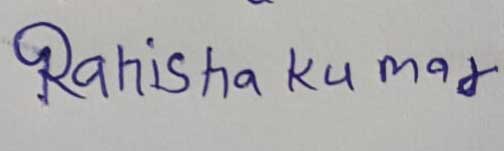 Ranisha kumar